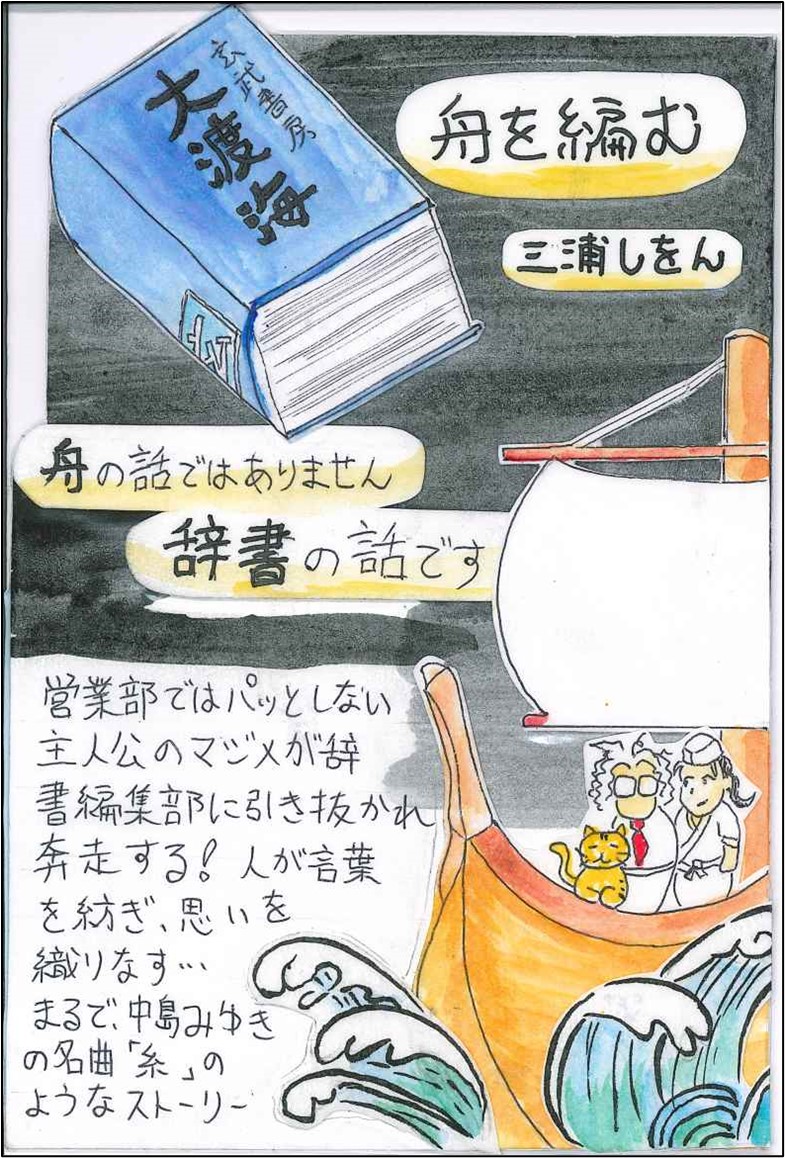 玄武書房
大渡海
舟を編む
三浦しをん
舟の話ではありません
辞書の話です
営業部ではパッとしない
主人公のマジメが辞
書編集部に引き抜かれ
奔走する！人が言葉
を紡ぎ、思いを
織りなす…
まるで、中島みゆき
の名曲「糸」の
ようなストーリー